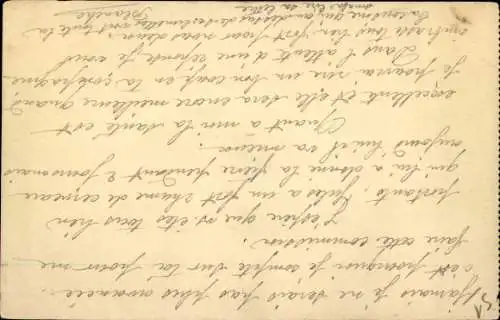 Jamais je ne serais pas plus avancée.
c'est pourquoi je compte sur toi pour me
faire cette commission.
J'espère que vs êtes tous bien
portants, Jules a un fort rhume de cerveau
qui lui a donné la fièvre pendant 2 jours mais
aujourd'hui il va mieux.
Quant à moi la santé est
excellente et elle sera encore meilleure quand
Je pourrai rire un bon coup en ta compagnie
Dans l'attente d'une réponse je vous
embrasse tous bien fort pour nous deux.
Blanche